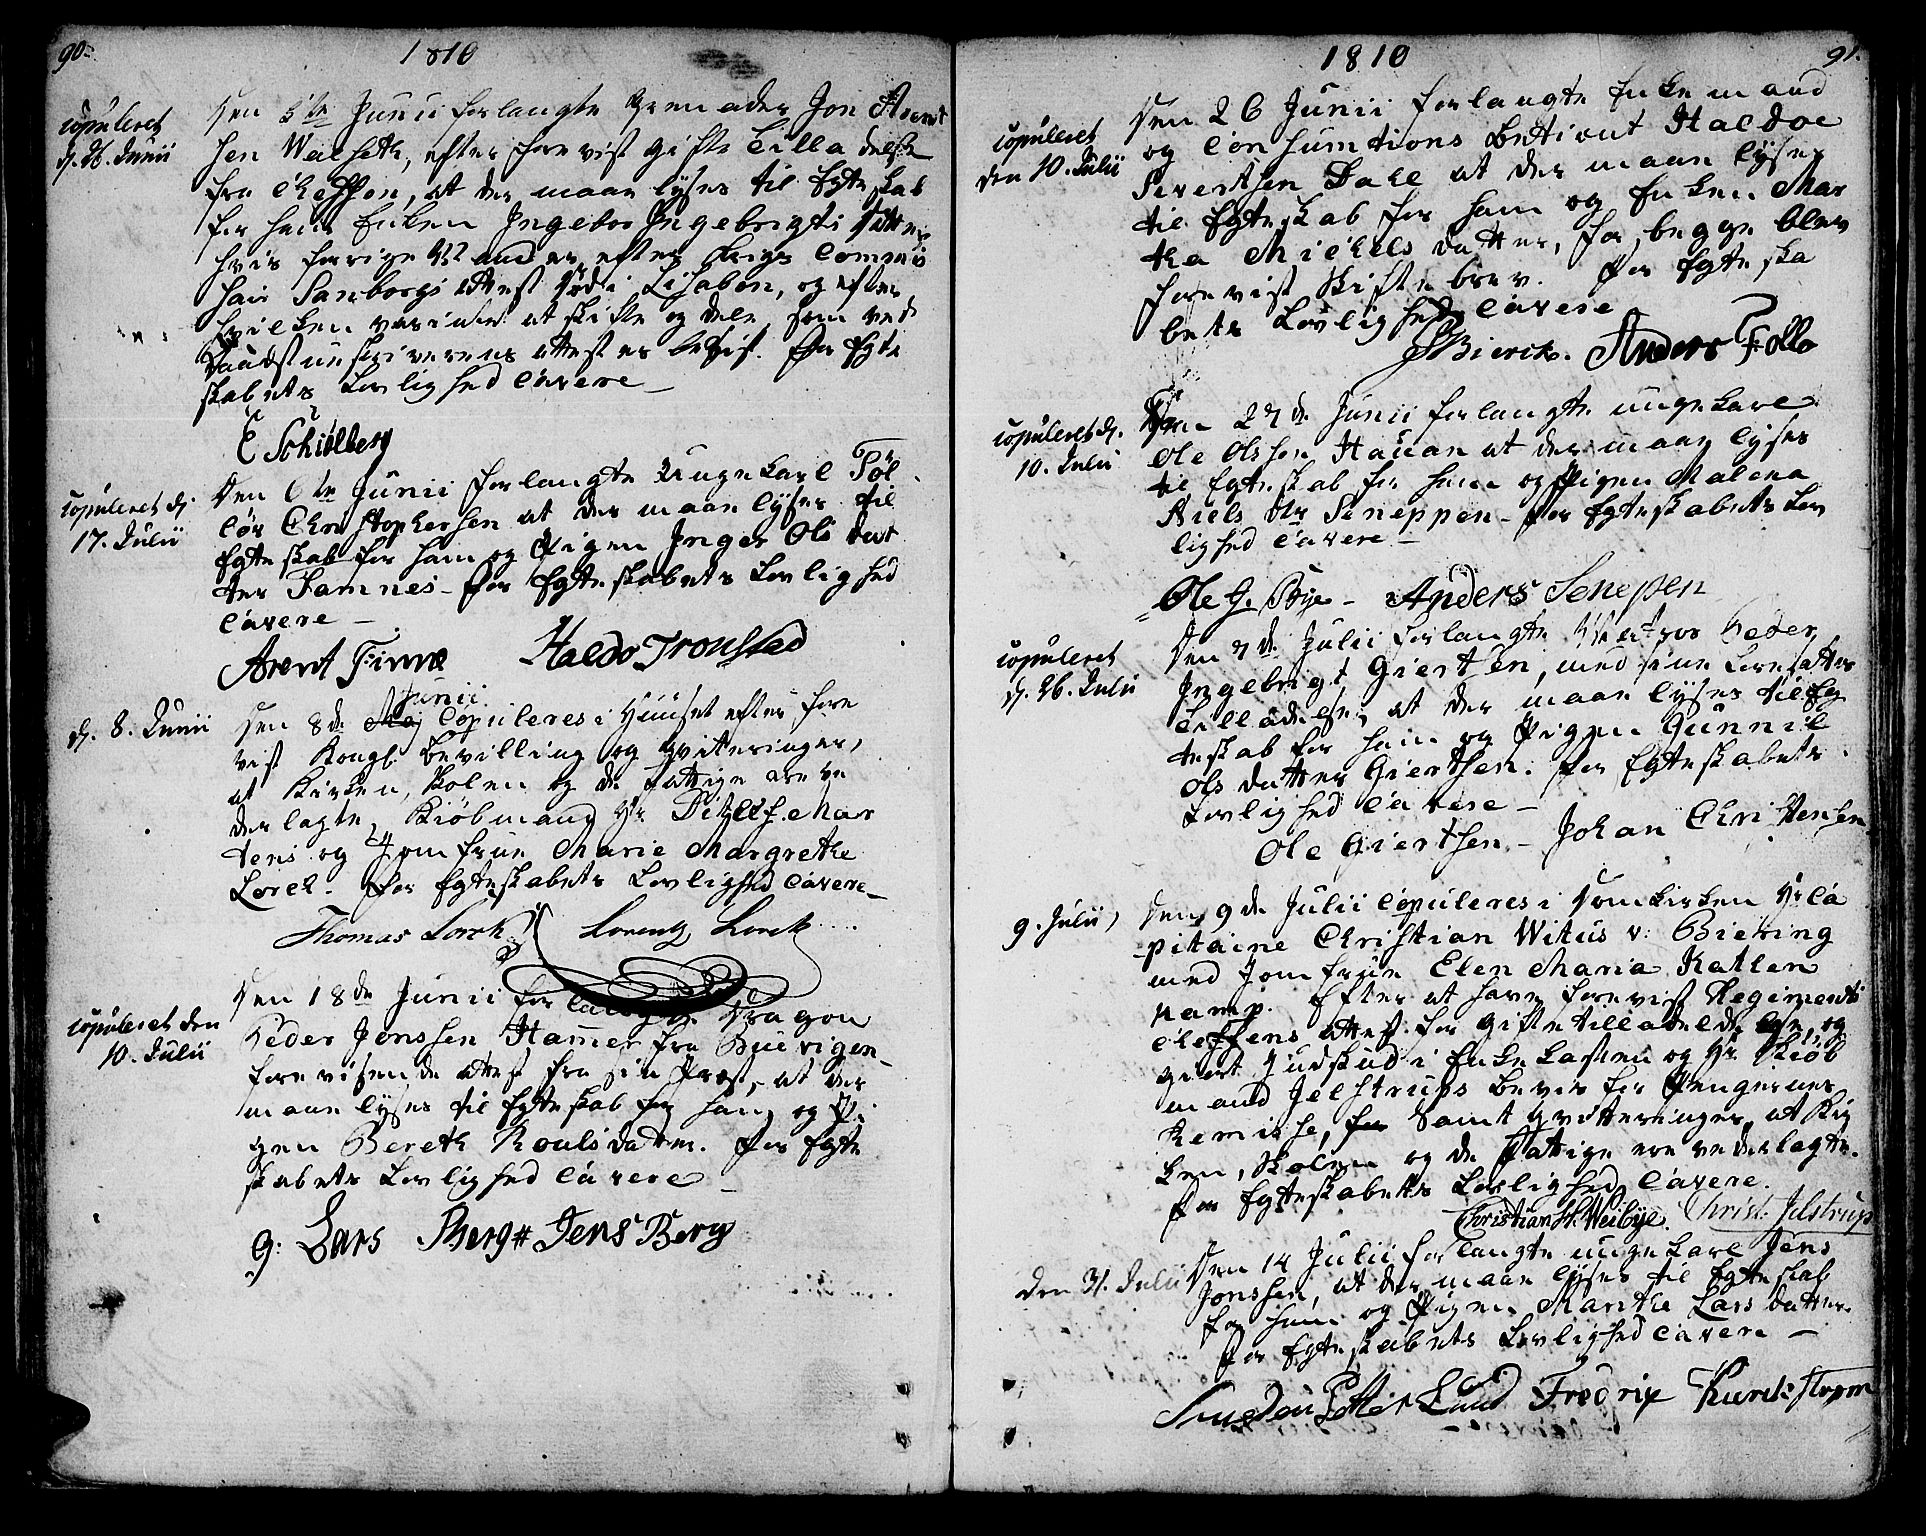 90.
1810
copuleret
d. 26. Junii
Den 5te Junii forlangte Grenader Jon Arent
sen Walseth, efter foreviist Gifte Tilladelse
fra Cheffen, at der maae lyses til Egteskab
for ham Enken Ingebor Ingebrigts Datter
hvis forrige Mand er efter Krigs Commis
hair Sanborgs Attest död i Lisabon, og efter
hvilken var intet at skifte og dele, som ved
Raadstueskriverens Attest er beviist. For Egte
skabets Lovlighed cavere
E Schiölberg
copuleret d.
17. Julii
Den 6te Junii forlangte Ungekarl Töl
löv Christophersen at der maae lyses til
Egteskab for ham og Pigen Inger Ols Dat
ter Famnes. For Egteskabets Lovlighed
cavere
Arent Finne Haldo Tronstad
d. 8. Junii
Junii
Den 8de Maj Copuleres i Huuset efter fore
viist Kongl. Bevilling og Qvitteringer,
at Kirken, Skolen og de Fattige ere ve
derlagte, Kiöbmand Hr. Ditlef Mar
tens og Jomfrue Marie Margrethe
Lorck. For Egteskabets Lovlighed cavere
Thomas Lorck Lorentz Lorck
copuleret den
10. Julii
Den 18de Junii forlangte Dragon
Peder Jonssen Hammer fra Buevigen
forevisende Attest fra sin Præst, at der
maae lyses til Egteskab for ham og Pi
gen Bereth Rouls datter. For Egte
skabets Lovlighed cavere
g: Lars Berg # Jens Berg
91.
1810
copuleret
den 10. Julii
Den 26 Junii forlangte Enkemand
og Consumtions Betient Haldoe
Sivertsen Dahl at der maae lyses
til Egteskab for ham og Enken Mar
tha Michels datter, for begge blev
foreviist Skiftebrev. For Egteska
bets Lovlighed cavere
Bierck. Anders Follo
copuleret d.
10. Julii
Den 27de Junii forlangte ungekarl
Ole Olssen Hauan at der maae lyses
til Egteskab for ham og Pigen Malena
Niels Dtr Seneppen. For Egteskabets Lov
lighed cavere
Ole G. Bye - Anders Senepen
copuleret
d. 26. Julii
Den 7de Julii forlangte Matros Peder
Ingebrigt Giertsen, med sine Foresattes
Tilladelse, at der maae lyses til Eg
teskab for ham og Pigen Gunnil
Ols datter Giertsen. For Egteskabets
Lovlighed cavere
Ole Giertsen - Johan Christensen
9. Julii
Den 9de Julii copuleres i Domkirken Hr Ca
pitaine Christian Witus v: Biering
med Jomfrue Elen Maria Kathen
kamp. Efter at have foreviist Regiments
Cheffens Attest for Giftetilladelse, og
giort Indskud i Enkekassen og Hr. Kiöb
mand Jelstrups Beviis for Pengernes
Remisse, for Samt Qvitteringer at Kir
ken, Skolen og de Fattige ere vederlagte.
For Egteskabets Lovlighed cavere.
Christian H. Weibye. Christ: Jelstrup
den 31. Julii
Den 14 Julii forlangte ungekarl Jens
Jonssen, at der maae lyses til Egteskab
for ham og Pigen Marthe Lars datter
For Egteskabets Lovlighed cavere
Petter Lund Fredrix